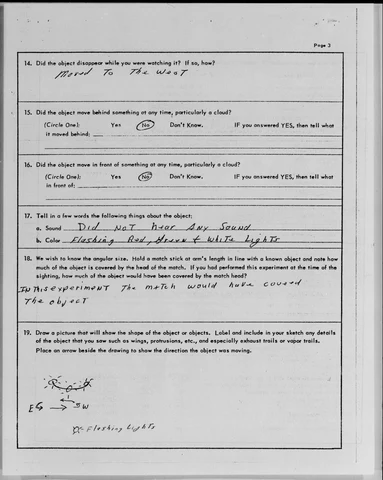 Page 3
14. Did the object disappear while you were watching it? If so, how?
Moved To The West
15. Did the object move behind something at any time, particularly a cloud?
(Circle One): Yes No Don't Know. IF you answered YES, then tell what
it moved behind:
16. Did the object move in front of something at any time, particularly a cloud?
(Circle One): Yes No Don't Know. IF you answered YES, then tell what
in front of:
17. Tell in a few words the following things about the object:
a. Sound Did Not hear Any Sound
b. Color Flashing Red, Green & White Lights
18. We wish to know the angular size. Hold a match stick at arm's length in line with a known object and note how
much of the object is covered by the head of the match. If you had performed this experiment at the time of the
sighting, how much of the object would have been covered by the match head?
In this experiment The match would have covered
The object
19. Draw a picture that will show the shape of the object or objects. Label and include in your sketch any details
of the object that you saw such as wings, protrusions, etc., and especially exhaust trails or vapor trails.
Place an arrow beside the drawing to show the direction the object was moving.
SW
Flashing Lights